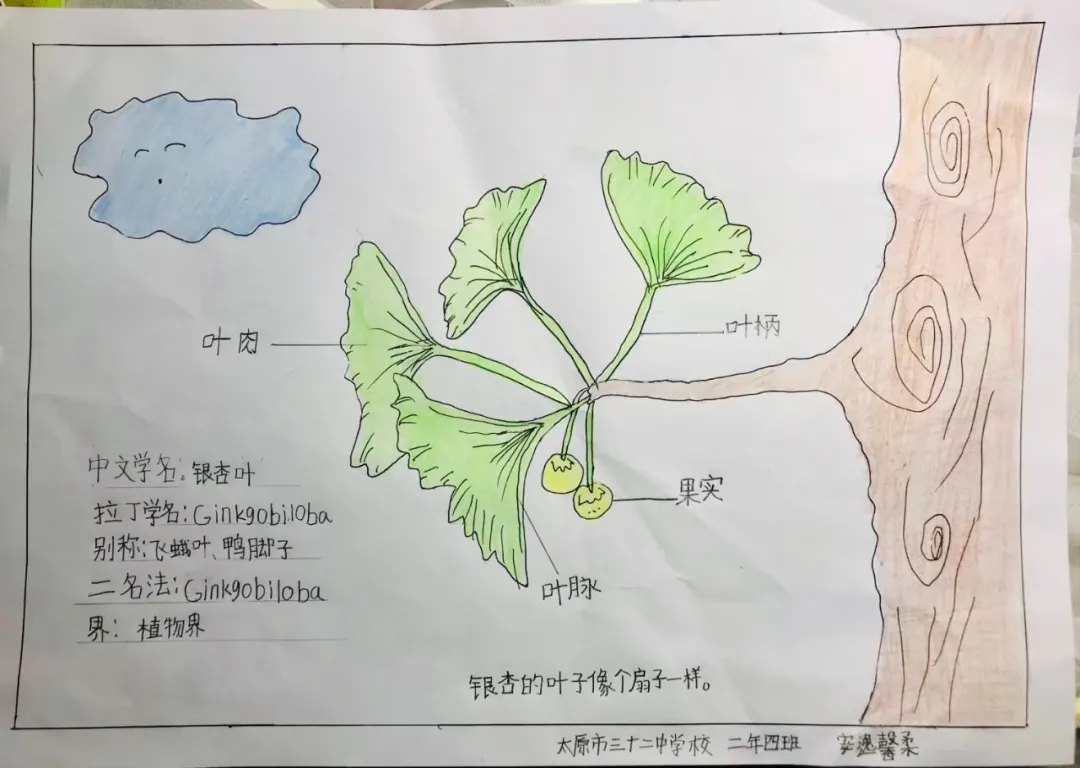 叶肉
叶柄
中文学名:银杏叶
拉丁学名:Ginkgobiloba
别称:飞蛾叶、鸭脚子
二名法:Ginkgobiloba
界:植物界
果实
叶脉
银杏的叶子像个扇子一样。
太原市三十二中学校 二年四班 馨柔